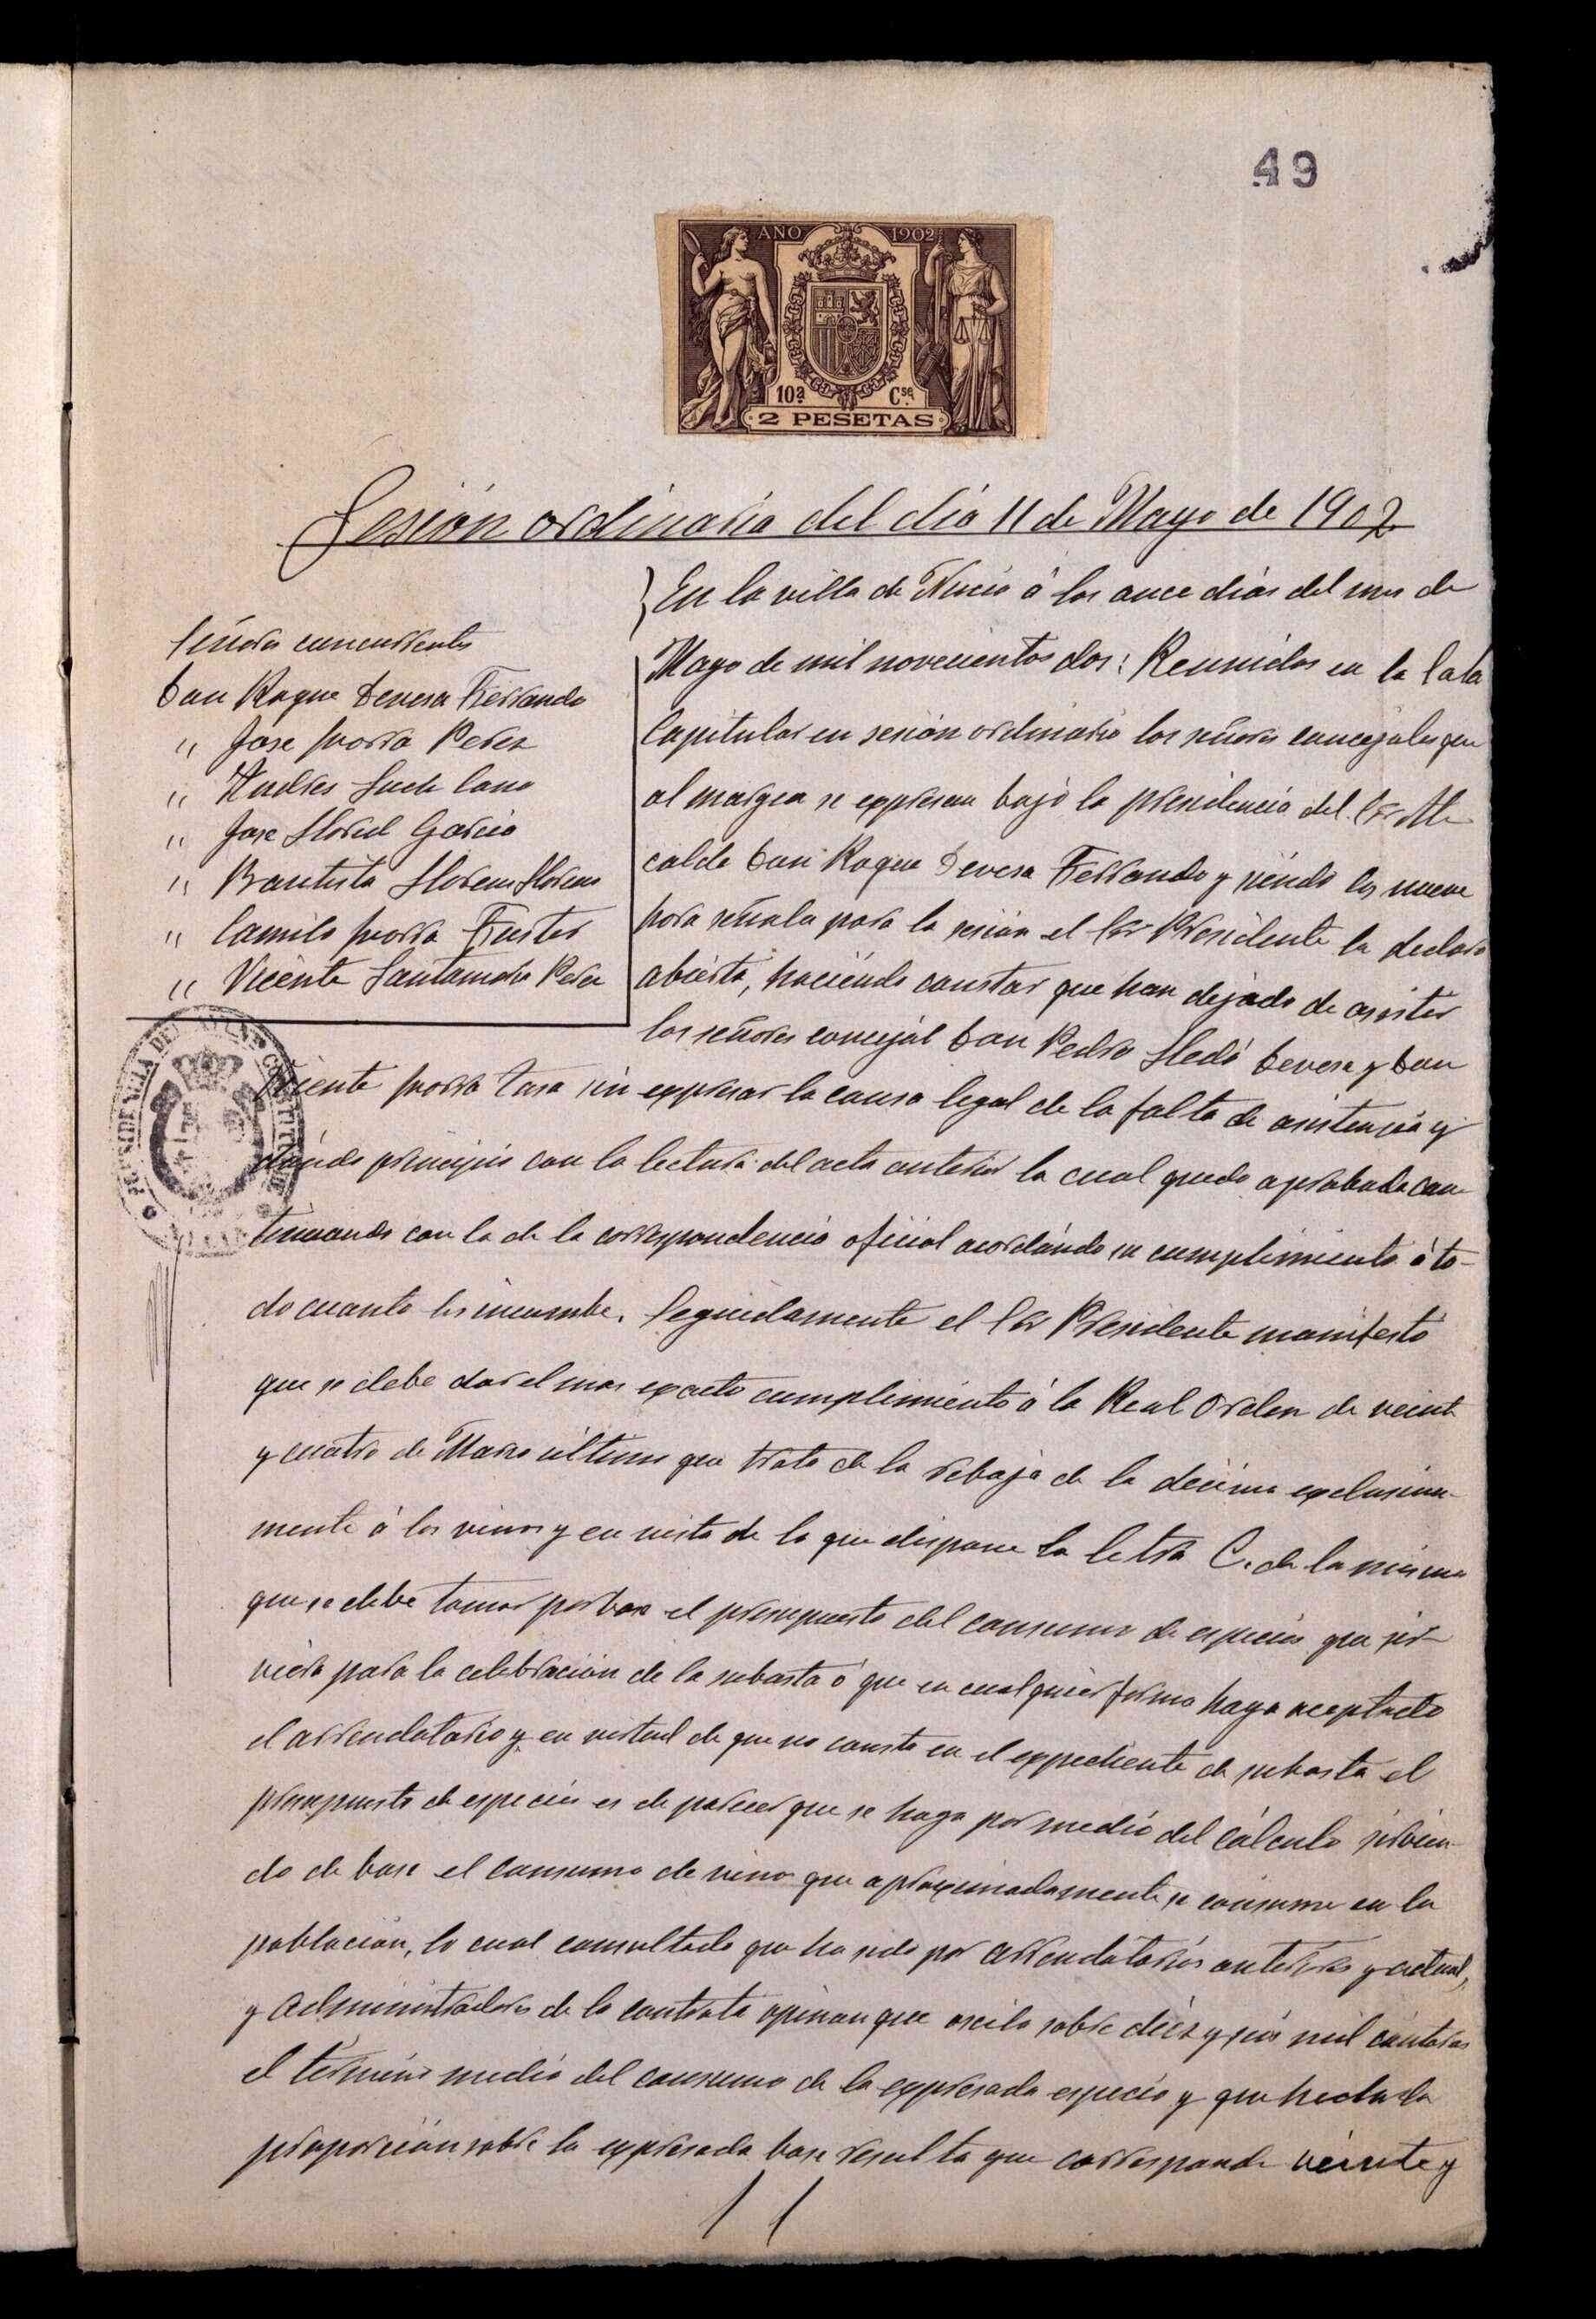 49
AÑO 1902
10ª Cse
2 PESETAS
Sesión ordinaria del día 11 de Mayo de 1902
Señores concurrentes
Don Roque Devesa Ferrando
" Jose Zaragoza Perez
" Andres Such Cano
" Jose Lloret Garcia
" Bautista Llorens Llorens
" Camilo Fuster
" Vicente Santamaria Perez
En la villa de Nucia á los once dias del mes de
Mayo de mil novecientos dos: Reunidos en la Sala
Capitular en sesión ordinaria los señores concejales que
al margen se expresan bajo la presidencia del Sor Al-
calde Don Roque Devesa Ferrando y siendo las nueve
hora señala para la sesión el Sor Presidente la declaro
abierta, haciendo constar que han dejado de asistir
los señores concejal Don Pedro Lledó Devesa y Don
Vicente sin expresar la causa legal de la falta de asistencia y
dando principio con la lectura del acta anterior la cual quedo aprobada con-
tinuando con la de la correspondencia oficial acordándo su cumplimiento á to-
do cuanto les incumbe. Seguidamente el Sor Presidente manifesto
que se debe dar el mas exacto cumplimiento á la Real Orden de veinte
y cuatro de Marzo último que trata de la rebaja de la décima exclusiva-
mente á los vinos y en vista de lo que dispone la letra C. de la misma
que se debe tomar por base el presupuesto del consumo de especies que sir-
viera para la celebración de la subasta ó que en cualquier forma haya aceptado
el arrendatario y en virtud de que no consta en el expediente de subasta el
presupuesto de especies es de parecer que se haga por medio del cálculo sirvien-
do de base el consumo de vino que aproximadamente se consume en la
población, lo cual consultado que ha sido por arrendatarios anteriores y actual,
y Administradores de la contrata opinan que oscila sobre diez y seis mil cántaros
el término medio del consumo de la expresada especie y que hecha la
proporción sobre la expresada base resulta que corresponde veinte y